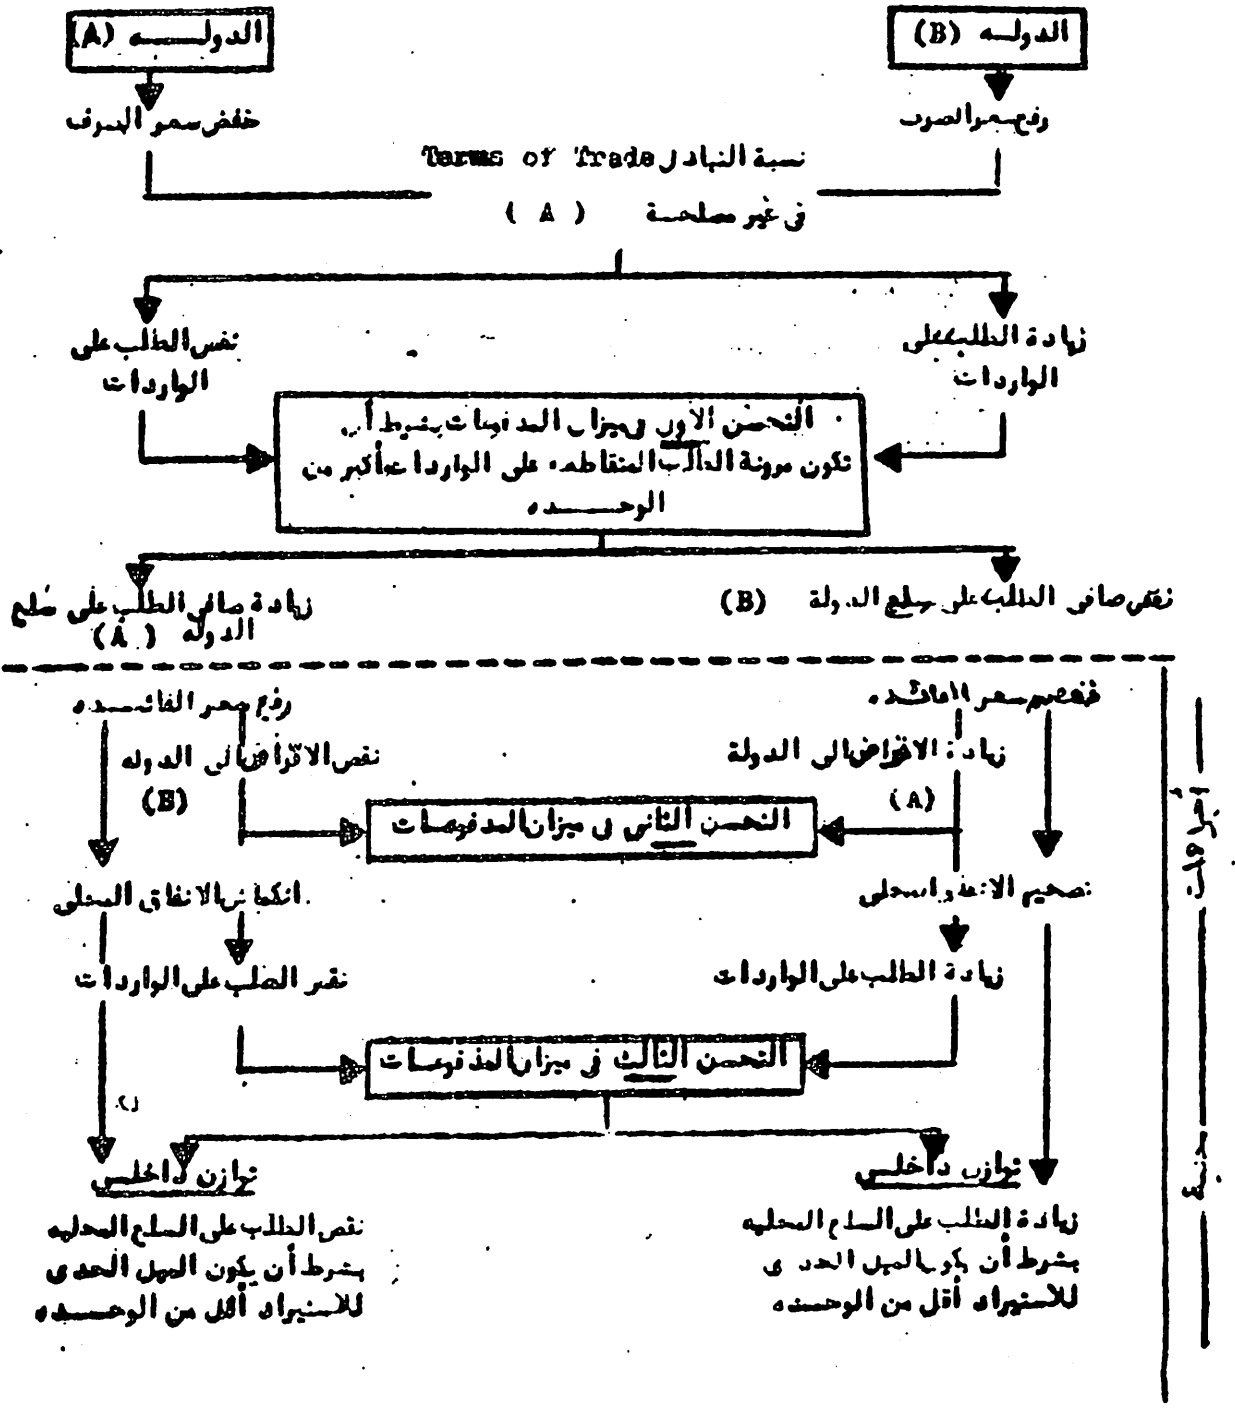 الدولـــه (B)
الدولـــــه (A)
رفع سعر الصرف
خفض سعر الصرف
نسبة التبادل Terms of Trade
فى غير مصلحــة ( A )
زيادة الطلب على
الواردات
نقص الطلب على
الواردات
التحسن الاول فى ميزان المدفوعات بشرط أن
تكون مرونة الطلب المتقاطعه على الواردات أكبر من
الوحـــــده
نقص صافى الطلب على سلع الدولة (B)
زيادة صافى الطلب على سلع
الدوله ( A )
خفض سعر الفائده
رفع سعر الفائـــده
زيادة الاقراض الى الدولة
(A)
نقص الاقراض الى الدوله
(B)
التحسن الثانى فى ميزان المدفوعــات
تضخيم الانفاق المحلى
انكماش الانفاق المحلى
زيادة الطلب على الواردات
نقص الطلب على الواردات
التحسن الثالث فى ميزان المدفوعــات
توازن داخلــى
توازن داخلــى
زيادة الطلب على السلع المحليه
بشرط أن يكون الميل الحدى
للاستيراد أقل من الوحــده
نقص الطلب على السلع المحليه
بشرط أن يكون الميل الحدى
للاستيراد أقل من الوحـــده
أجراءات